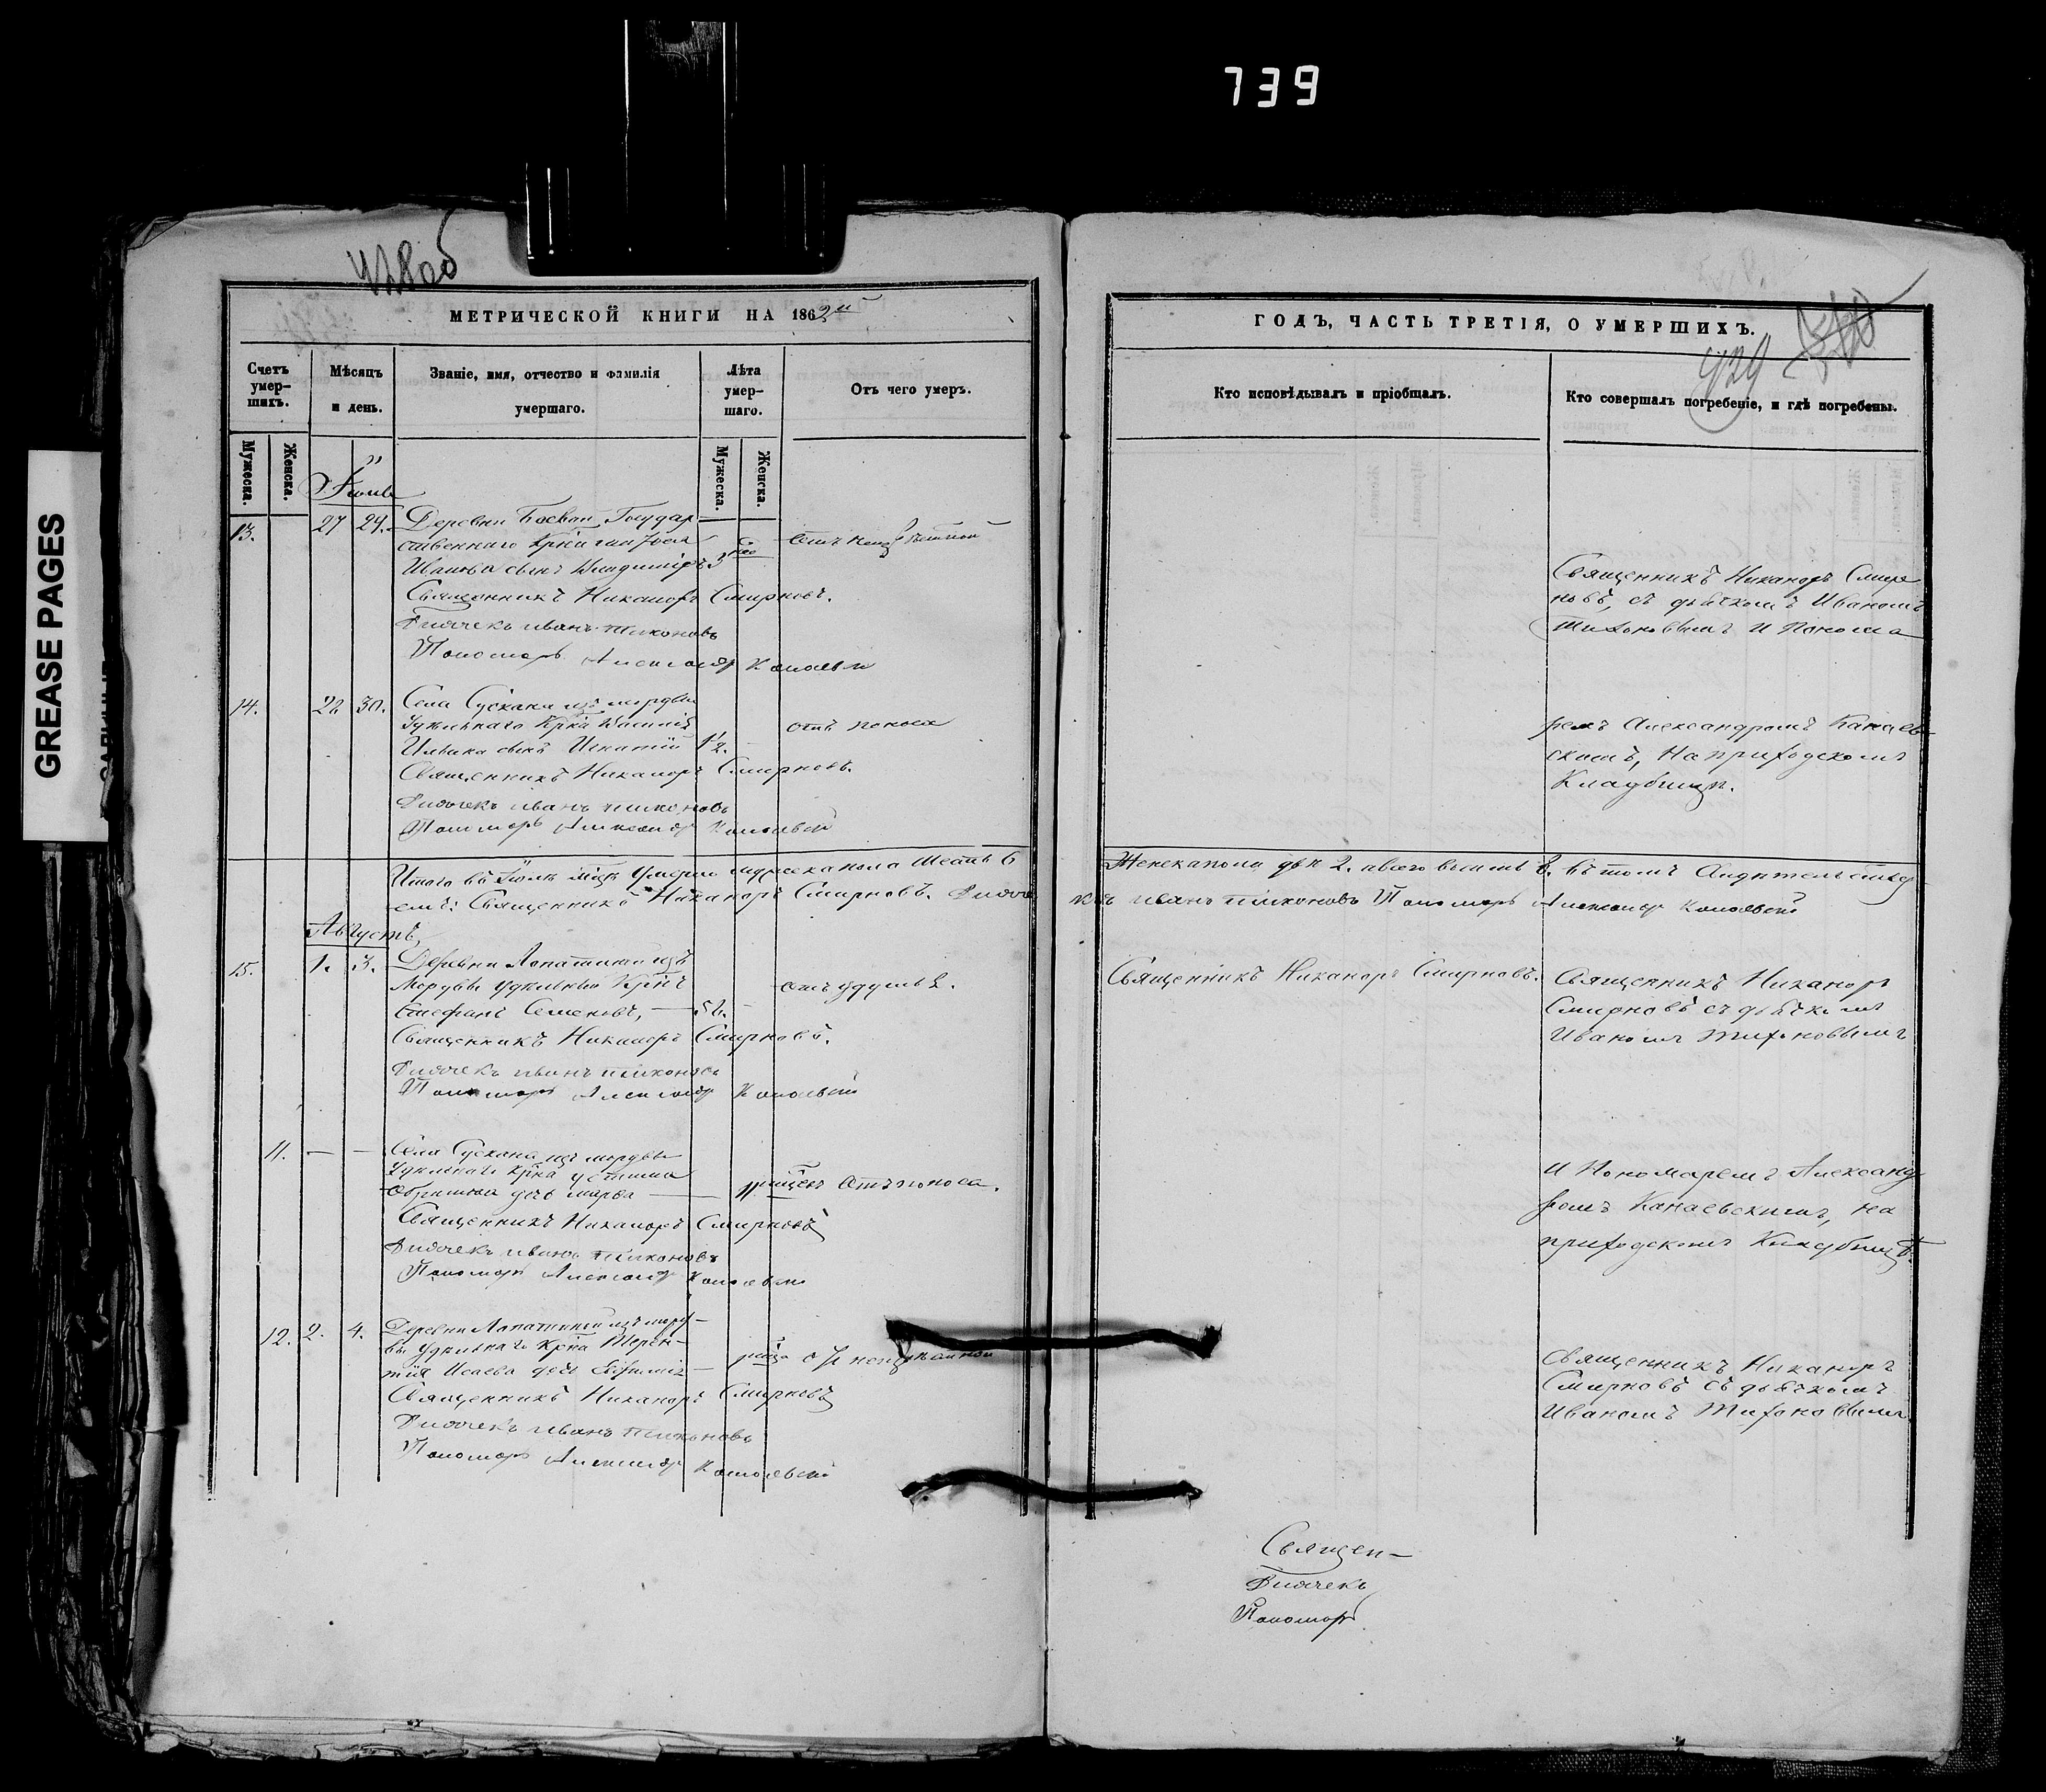 739
GREASE PAGES
428об
МЕТРИЧЕСКОЙ КНИГИ НА 1862й
Счетъ умер-шихъ.
Мѣсяцъ и день.
Званіе, имя, отчество и фамилія умершаго.
Лѣта умер-шаго.
Отъ чего умеръ.
Мужеска.
Женска.
Мужеска.
Женска.
Іюль
13. 27 29. Деревни Государ-
ственнаго Крн҃ина
Иванова сынъ Владиміръ 3 нед
Священникъ Никаноръ Смирновъ.
Дьячекъ Иванъ Тихоновъ
Пономарь Александръ Канаевскій
14. 28 30. Села Сускана изъ мордвы
Удѣльнаго Крн҃ина
сынъ Игнатій 1/2. отъ поноса
Священникъ Никаноръ Смирновъ.
Дьячекъ Иванъ Тихоновъ
Пономарь Александръ Канаевскій
Итого въ Іюлѣ мцѣ Умерло мужеска пола шесть 6
емъ: Священникъ Никаноръ Смирновъ. Дьяче
Августъ
15. 1. 3. Деревни Лопатиной изъ
Мордвы удѣльный Крн҃инъ отъ удушья.
Стефанъ Семеновъ, — 56. —
Священникъ Никаноръ Смирновъ.
Дьячекъ Иванъ Тихоновъ
Пономарь Александръ Канаевскій
11. — — Села Сускана изъ мордвы
Удѣльнаго Крн҃ина Устина
дочь Марѳа — 11 отъ поноса.
Священникъ Никаноръ Смирновъ
Дьячекъ Иванъ Тихоновъ
Пономарь Александръ Канаевскій
12. 2. 4. Деревни Лопатиной изъ морд-
вы удѣльнаго Крн҃ина Терен-
тія Исаева дочь Евфимія —
Священникъ Никаноръ Смирновъ
Дьячекъ Иванъ Тихоновъ
Пономарь Александръ Канаевскій
ГОДЪ, ЧАСТЬ ТРЕТІЯ, О УМЕРШИХЪ.
429
Кто исповѣдывалъ и пріобщалъ.
Кто совершалъ погребеніе, и гдѣ погребены.
Священникъ Никаноръ Смир
новъ, съ дьячкомъ Иваномъ
Тихоновымъ и Понома
ремъ Александромъ Канаев-
скимъ, На приходскомъ
Кладбищѣ.
Женска пола двѣ 2. а всего восемь 8. Въ томъ Свидѣтельству
къ Иванъ Тихоновъ Пономарь Александръ Канаевскій
Священникъ Никаноръ Смирновъ.
Священникъ Никаноръ
Смирновъ съ дьячкомъ
Иваномъ Тихоновымъ
и Пономаремъ Александ
ромъ Канаевскимъ, на
приходскомъ Кладбищѣ.
Священникъ Никаноръ
Смирновъ съ дьячкомъ
Иваномъ Тихоновымъ
Священ-
Дьячекъ
Пономарь